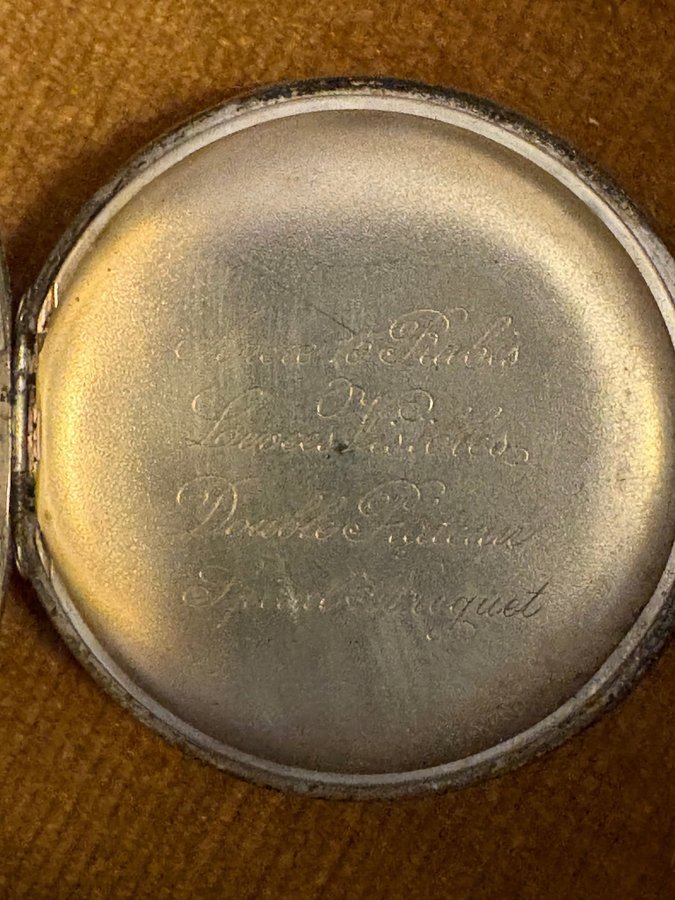 Ancre 15 Rubis
y
Levées Visibles
Double Plateau
Spiral Breguet